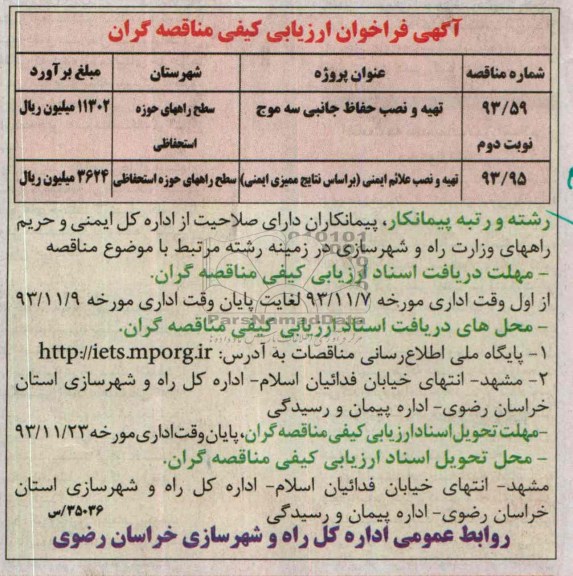 آگهی فراخوان ارزیابی کیفی مناقصه گران
شماره مناقصه عنوان پروژه شهرستان مبلغ برآورد
۹۳/۵۹ نوبت دوم تهیه و نصب حفاظ جانبی سه موج سطح راههای حوزه استحفاظی ۱۱۳۰۲ میلیون ریال
۹۳/۹۵ تهیه و نصب علائم ایمنی (براساس نتایج ممیزی ایمنی) سطح راههای حوزه استحفاظی ۳۶۲۴ میلیون ریال
رشته و رتبه پیمانکار، پیمانکاران دارای صلاحیت از اداره کل ایمنی و حریم
راههای وزارت راه و شهرسازی در زمینه رشته مرتبط با موضوع مناقصه
- مهلت دریافت اسناد ارزیابی کیفی مناقصه گران.
از اول وقت اداری مورخه ۹۳/۱۱/۷ لغایت پایان وقت اداری مورخه ۹۳/۱۱/۹
- محل های دریافت اسناد ارزیابی کیفی مناقصه گران.
ParsNamadData
۱- پایگاه ملی اطلاع‌رسانی مناقصات به آدرس: http://iets.mporg.ir
۲- مشهد- انتهای خیابان فدائیان اسلام- اداره کل راه و شهرسازی استان
خراسان رضوی- اداره پیمان و رسیدگی
-مهلت تحویل اسناد ارزیابی کیفی مناقصه گران، پایان وقت اداری مورخه ۹۳/۱۱/۲۳
- محل تحویل اسناد ارزیابی کیفی مناقصه گران.
مشهد- انتهای خیابان فدائیان اسلام- اداره کل راه و شهرسازی استان
خراسان رضوی- اداره پیمان و رسیدگی ۳۵۰۳۶/س
روابط عمومی اداره کل راه و شهرسازی خراسان رضوی